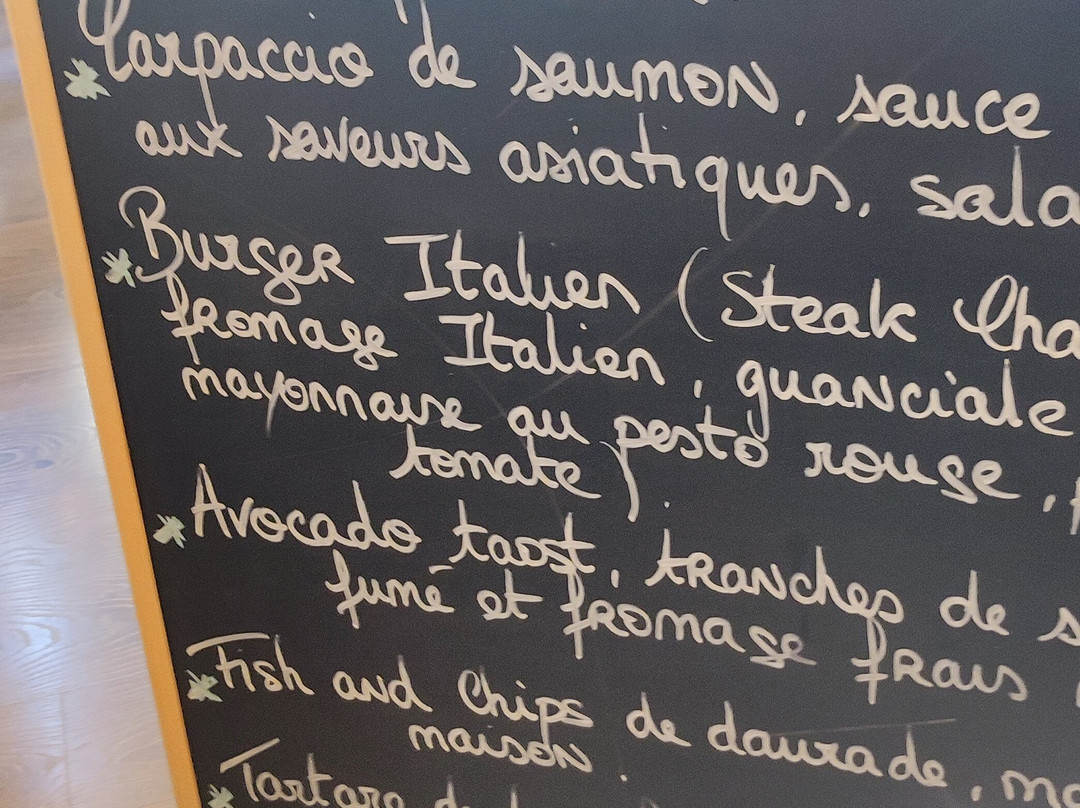 Carpaccio de saumon, sauce
aux saveurs asiatiques, sala
Burger Italien (Steak Cha
fromage Italien, guanciale
mayonnaise au pesto rouge,
tomate).
Avocado taost, tranches de s
fumé et fromage frais
Fish and Chips de daurade, ma
maison.
Tartare de